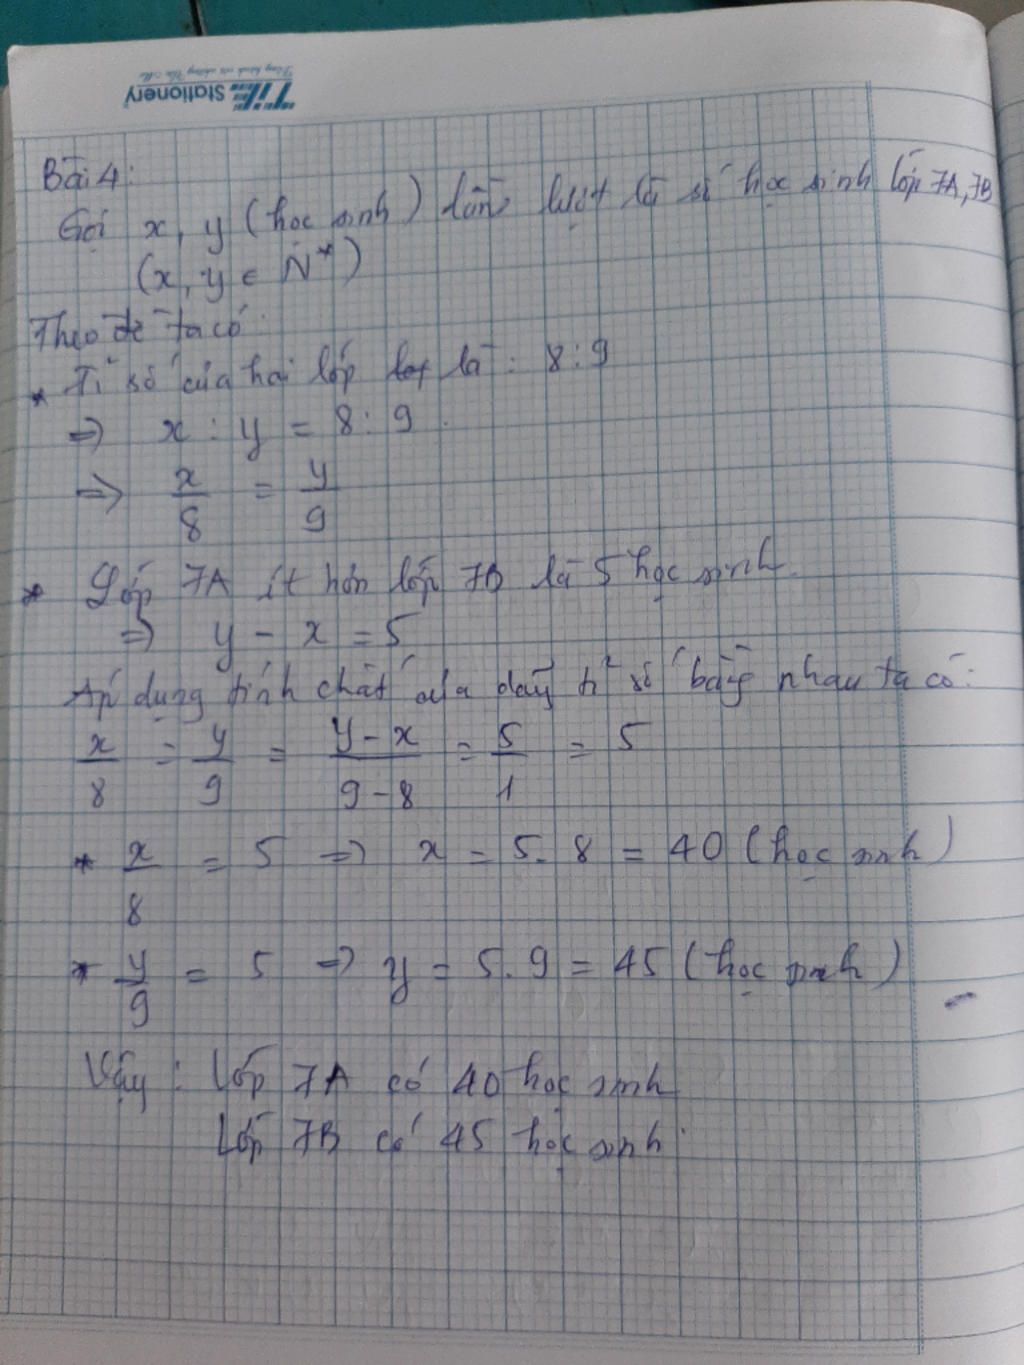 TiTi Stationery
Bài 4:
Gọi x, y (học sinh) lần lượt là số học sinh lớp 7A, 7B
(x, y ∈ N*)
Theo đề ta có:
* Tỉ số của hai lớp là : 8 : 9
⇒ x : y = 8 : 9.
⇒ x/8 = y/9
* Lớp 7A ít hơn lớp 7B là 5 học sinh.
⇒ y - x = 5
Áp dụng tính chất của dãy tỉ số bằng nhau ta có:
x/8 = y/9 = (y - x)/(9 - 8) = 5/1 = 5
* x/8 = 5 ⇒ x = 5. 8 = 40 (học sinh)
* y/9 = 5 ⇒ y = 5. 9 = 45 (học sinh)
Vậy : Lớp 7A có 40 học sinh
Lớp 7B có 45 học sinh.